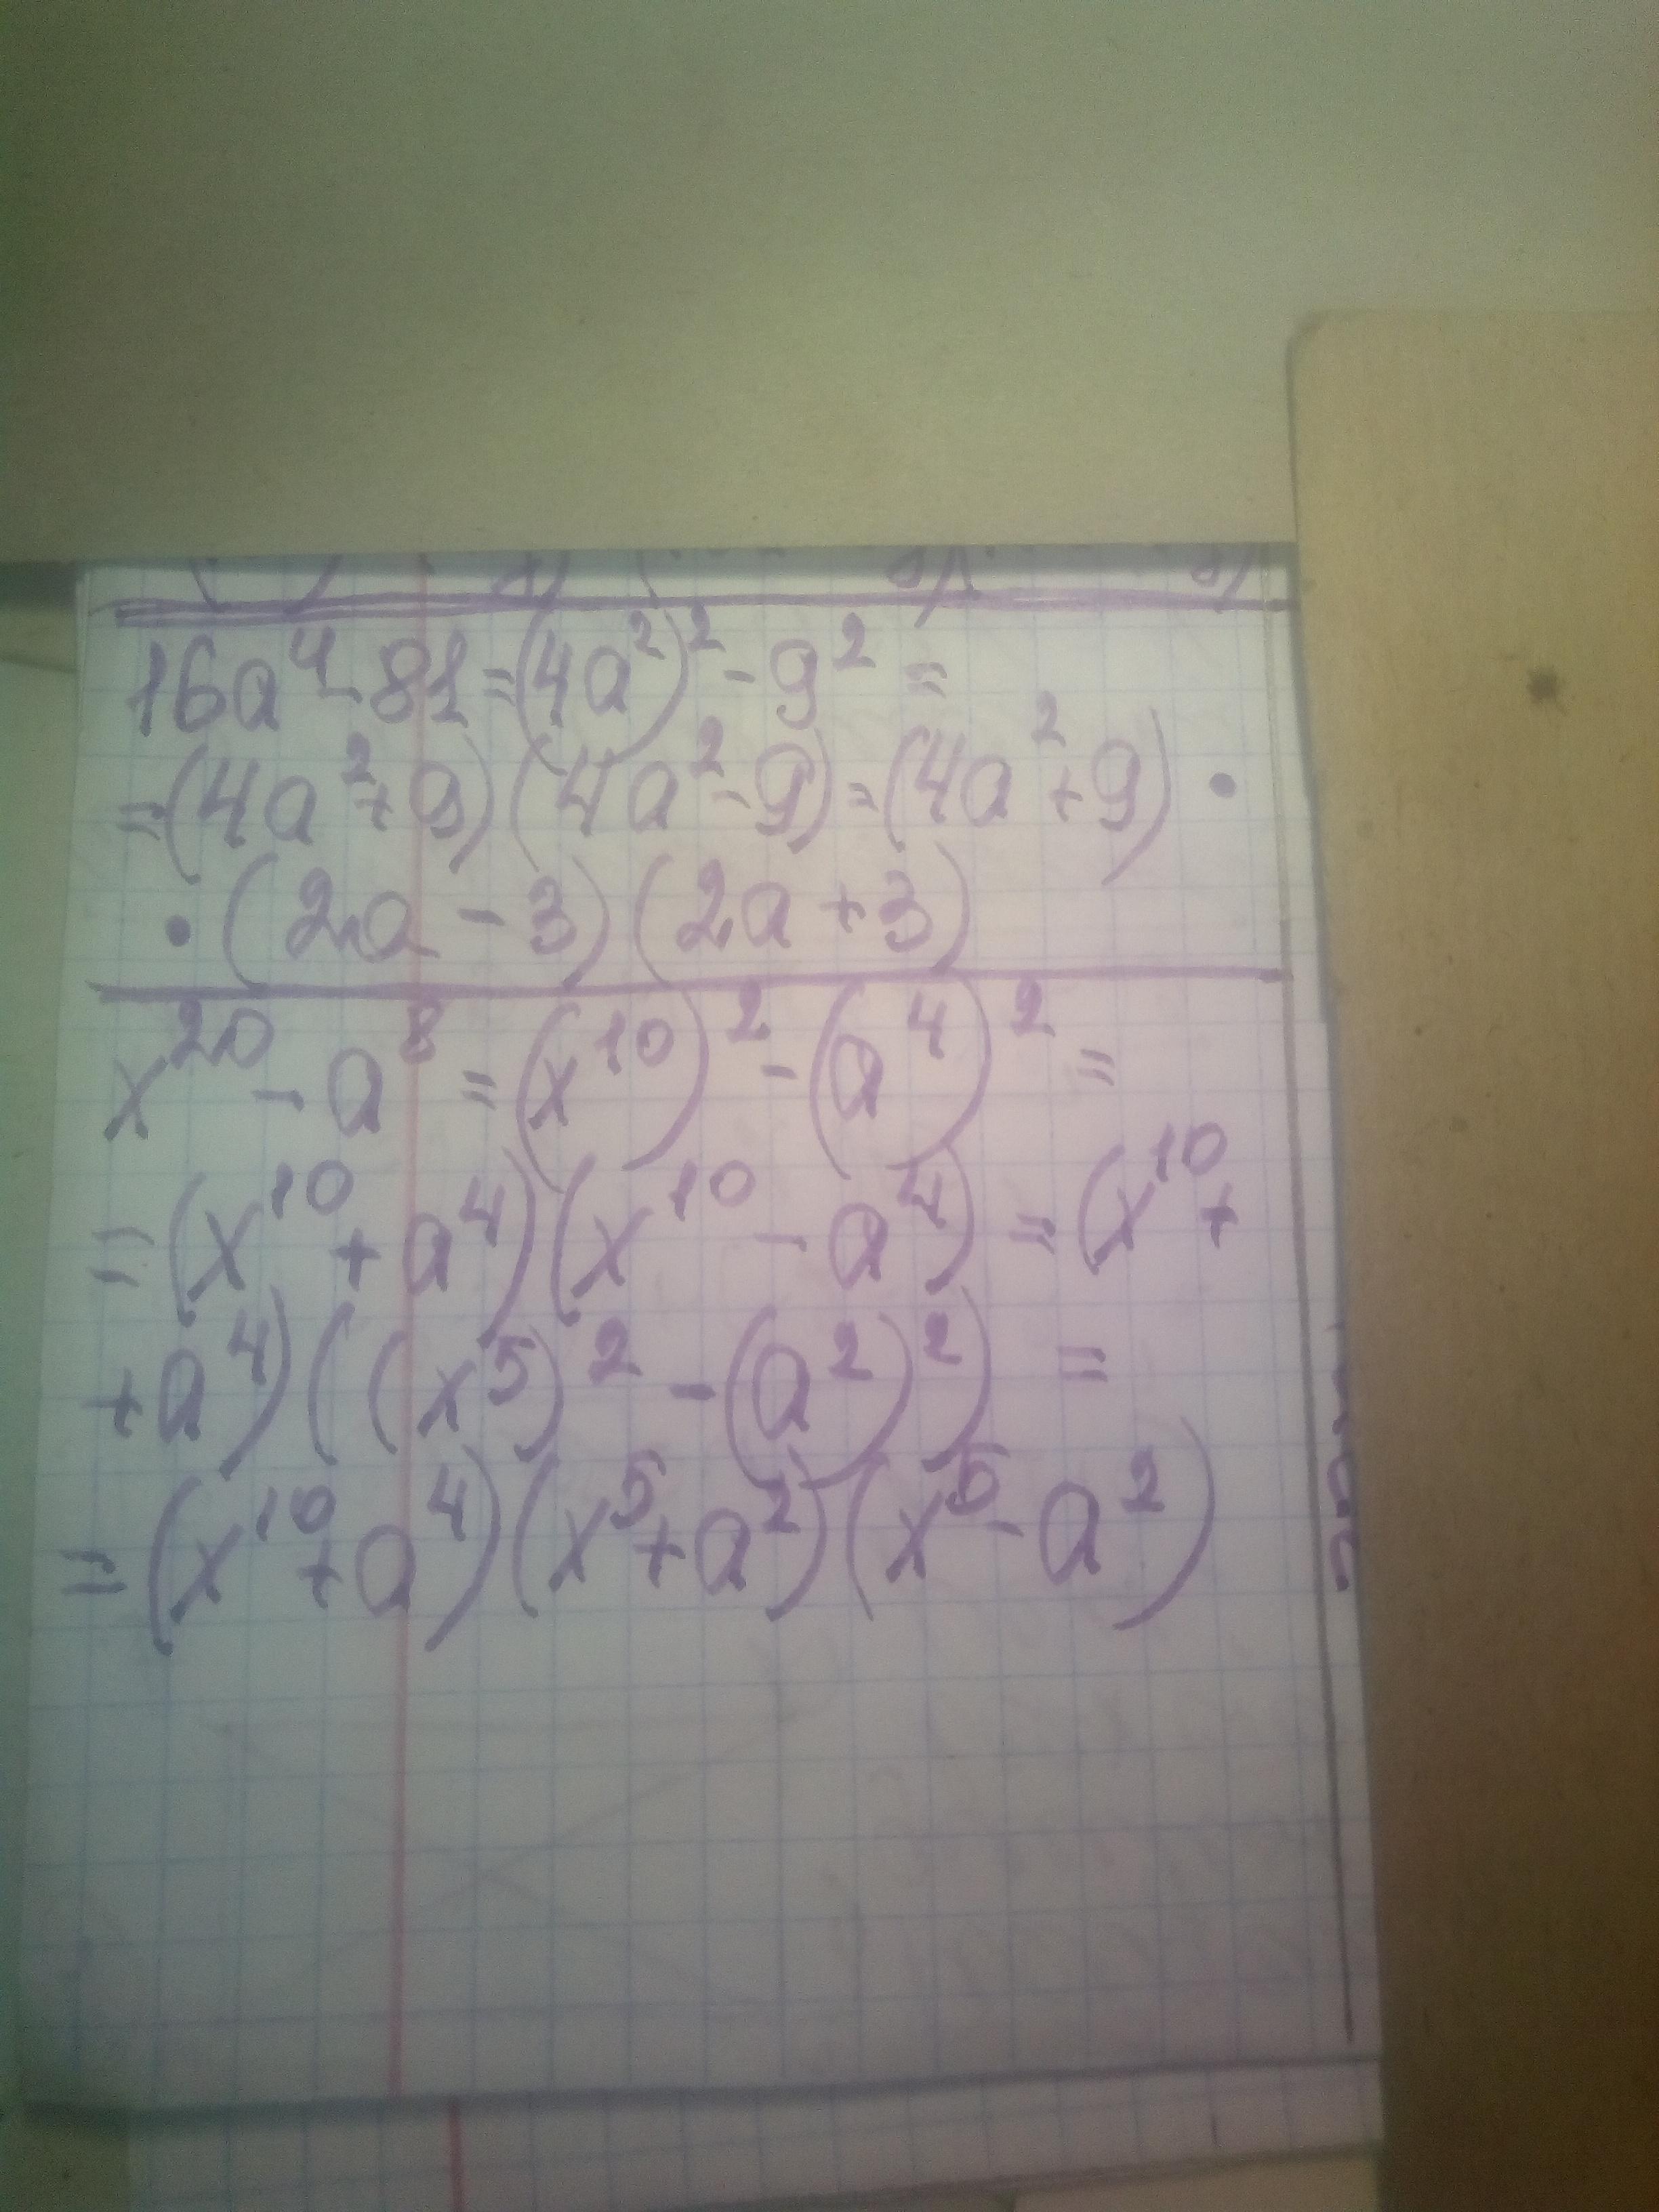 16a⁴-81=(4a²)²-9²=
=(4a²+9)(4a²-9)=(4a²+9)•
•(2a-3)(2a+3)
x²⁰-a⁸=(x¹⁰)²-(a⁴)²=
=(x¹⁰+a⁴)(x¹⁰-a⁴)=(x¹⁰+
+a⁴)((x⁵)²-(a²)²)=
=(x¹⁰+a⁴)(x⁵+a²)(x⁵-a²)